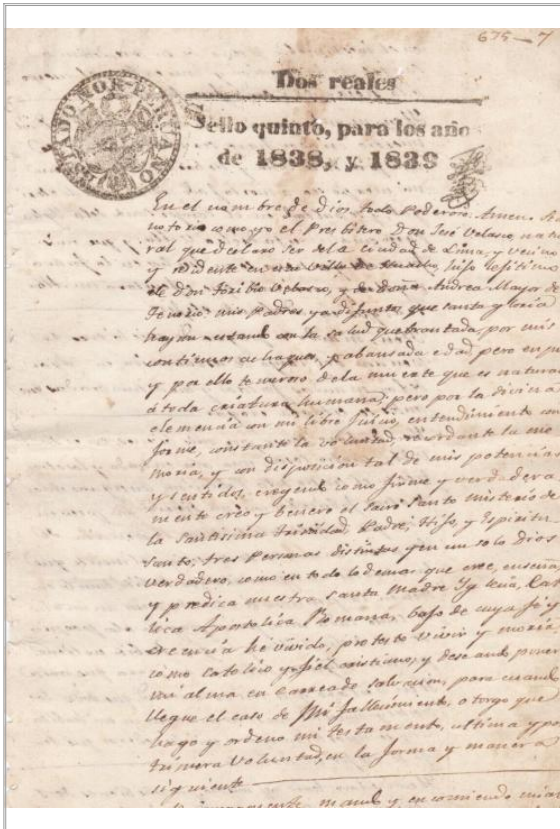 675-7
ESTADO NOR-PERUANO
Dos reales
Sello quinto, para los año
de 1838, y 1839
En el nombre de Dios todo Poderoso Amen
notorio como yo el Presbitero Don José Velasco, natu
ral que declaro ser dela Ciudad de Lima, y vecino
y residente en esta Villa de Huacho, hijo lejitimo
de Don Toribio Velasco, y de Doña Andrea Mayor de
mis Padres ya difuntos, que santa gloria
hayan estando con la salud quebrantada, por mis
continuos achaques, y abansada edad, pero en pie
y por ello temeroso dela muerte que es natural
á toda criatura humana, pero por la divina
clemencia con mi libre Juicio, entendimiento con
forme, constante la voluntad, recordante la me
moria, y con disposicion tal de mis potencias
y sentidos, creyendo como firme y verdadera
mente creo y benero el Sacro Santo misterio de
la Santisima Trinidad, Padre, Hijo, y Espiritu
Santo, tres Personas distintas y en un solo Dios
verdadero, como en todo lo demas que cree, enseña,
y predica nuestra Santa Madre Yglecia, Cat
lica Apostolica Romana, bajo de cuya fé y
creencia hé vivido, protesto vivir y morir
como catolico y fiel cristiano, y deseando poner
mi alma en Carreade salvacion, para cuando
llegue el caso de Mi fallecimiento, otorgo que
hago y ordeno mi testamento, ultima y pos
trimera Voluntad, en la forma y manera
siguiente
mando y encomiendo mi